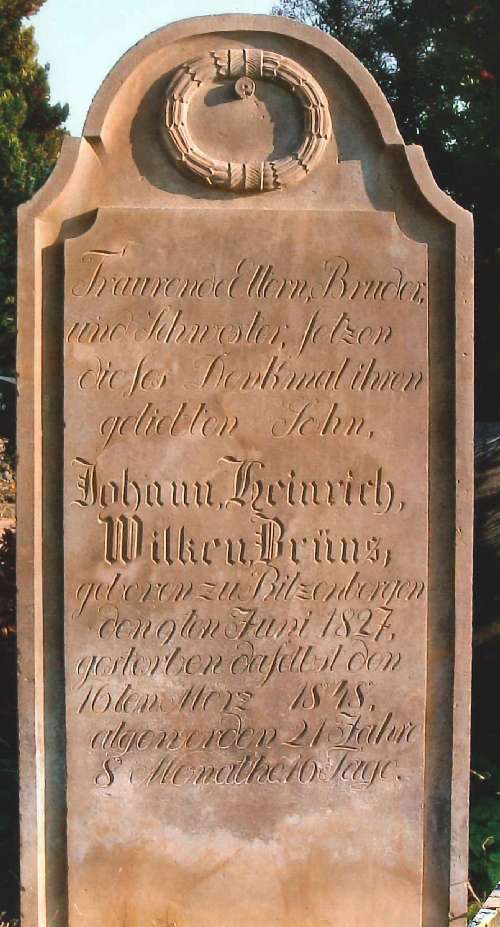 Traurende Eltern, Bruder,
und Schwester, setzen
dieses Denkmal ihren
geliebten Sohn,
Johann, Heinrich,
Wilken, Brüns,
geboren zu Bitzenbergen
den 9ten Juni 1827,
gestorben daselbst den
16ten Merz 1848,
altgeworden 21 Jahre
8 Monathe, 16 Tage.